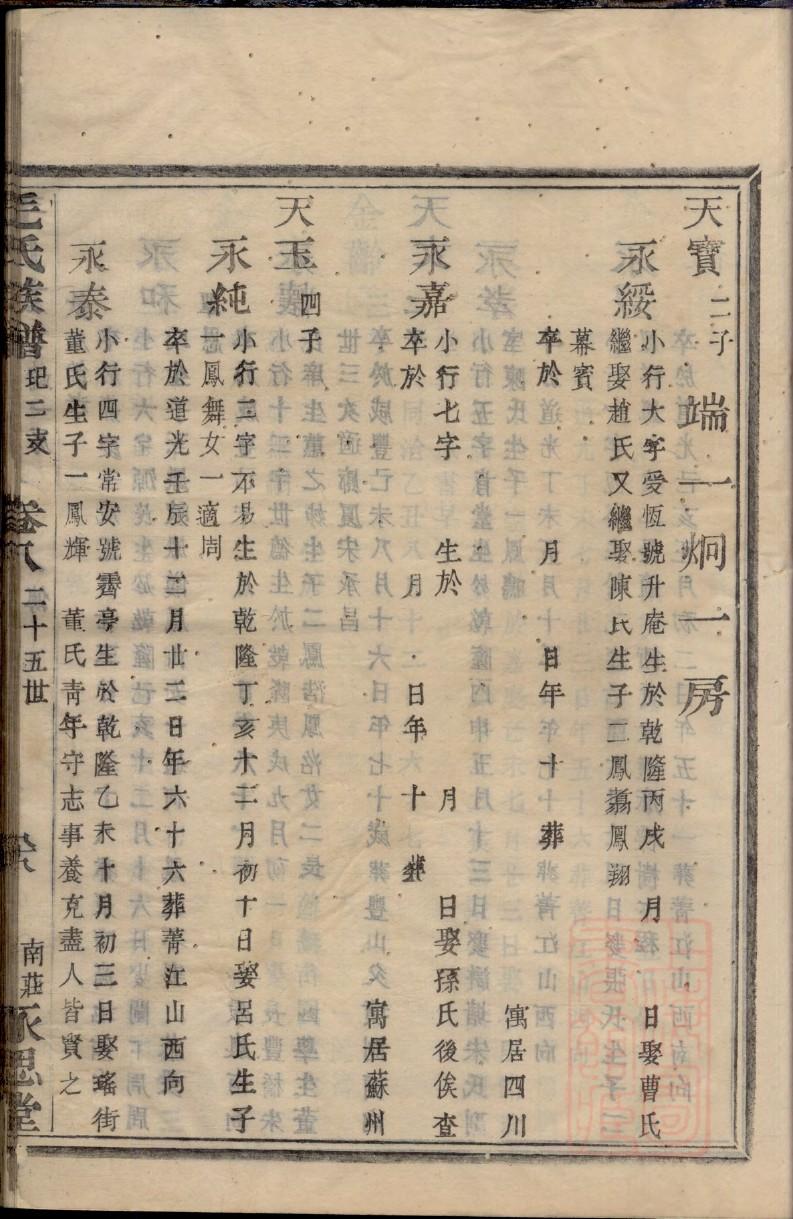 天寶二子 端一炯一房
永綏 小行大字愛恆號升庵生於乾隆丙戌 月 日娶曹氏
繼娶趙氏又繼娶陳氏生子二鳳翥鳳翔
幕賓 寓居四川
卒於道光丁未 月 日年 十 葬
永嘉 小行七字 生於 月 日娶孫氏後俟查
卒於 月 日年 十 葬 寓居蘇州
天玉四子
永純 小行三字不易生於乾隆丁亥十二月初十日娶呂氏生子
一鳳舞女一適周
卒於道光壬辰十二月廿二日年六十六葬菁江山西向
永泰 小行四字常安號霽亭生於乾隆乙未十月初三日娶瑤街
董氏生子一鳳輝 董氏青年守志事養克盡人皆賢之
毛氏族譜 玘二支 卷八 二十五世 南莊永思堂